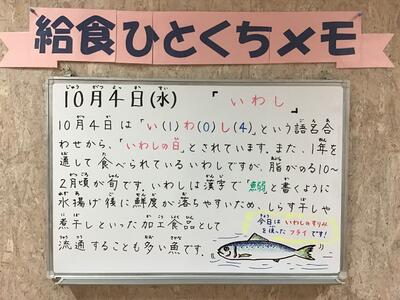 給食ひとくちメモ
10月4日(水)
「いわし」
10月4日は「い(1)わ(0)し(4)」という語呂合
わせから、「いわしの日」とされています。また、1年を
通して食べられているいわしですが、脂がのる10〜
2月頃が旬です。いわしは漢字で「鰯」と書くように
水揚げ後に鮮度が落ちやすいため、しらす干しや
煮干しといった加工食品として
流通することも多い魚です。
今日はいわしのすりみ
を使ったフライです!